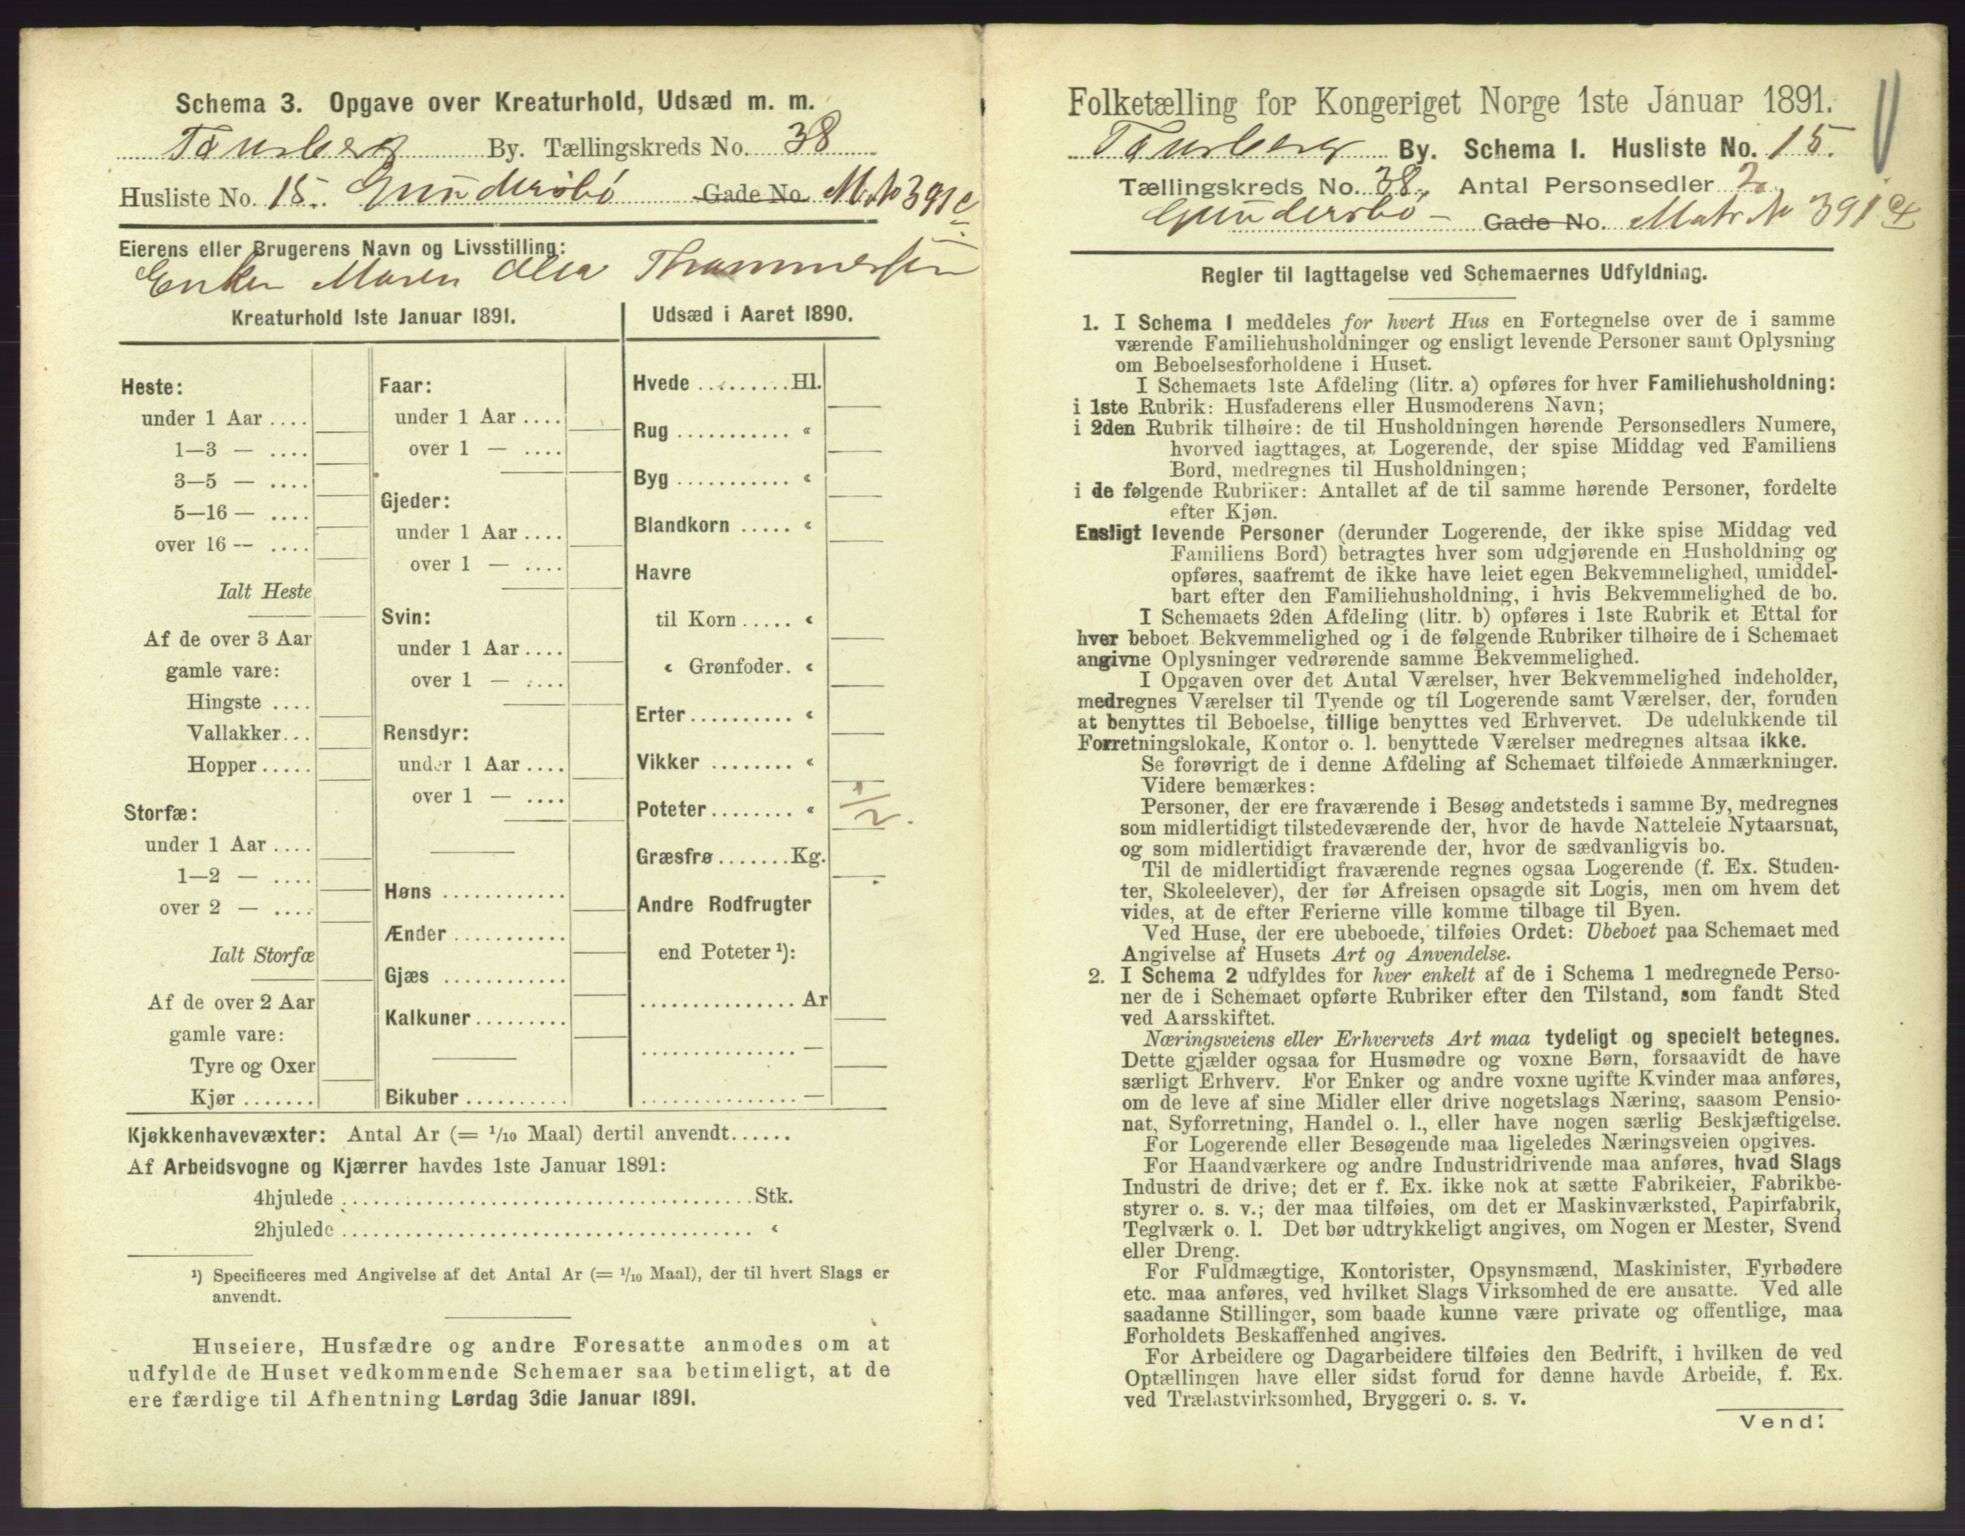 Schema 3. Opgave over Kreaturhold, Udsæd m. m.
Tønsberg By. Tællingskreds No. 38
Husliste No. 15. Gundersbø Gade No. M. No 391c
Eierens eller Brugerens Navn og Livsstilling:
Enken Maren Olea Thommesen
Kreaturhold 1ste Januar 1891.
Heste:
under 1 Aar ....
1—3 — ....
3—5 — ....
5—16 — ....
over 16 — ....
Ialt Heste
Af de over 3 Aar
gamle vare:
Hingste ....
Vallakker...
Hopper.....
Storfæ:
under 1 Aar ....
1—2 — ....
over 2 — ....
Ialt Storfæ
Af de over 2 Aar
gamle vare:
Tyre og Oxer
Kjør .......
Faar:
under 1 Aar ....
over 1 — ....
Gjeder:
under 1 Aar ....
over 1 — ....
Svin:
under 1 Aar ....
over 1 — ....
Rensdyr:
under 1 Aar ....
over 1 — ....
Høns ............
Ænder...........
Gjæs ............
Kalkuner.........
Bikuber ..........
Udsæd i Aaret 1890.
Hvede .........Hl.
Rug ........... «
Byg ........... «
Blandkorn ..... «
Havre
til Korn ..... «
« Grønfoder. «
Erter.......... «
Vikker ........ «
Poteter........ « 1/2.
Græsfrø.......Kg.
Andre Rodfrugter
end Poteter ¹):
............... Ar
............... —
............... —
Kjøkkenhavevæxter: Antal Ar (= 1/10 Maal) dertil anvendt......
Af Arbeidsvogne og Kjærrer havdes 1ste Januar 1891:
4hjulede ........................................Stk.
2hjulede ........................................ «
¹) Specificeres med Angivelse af det Antal Ar (= 1/10 Maal), der til hvert Slags er
anvendt.
Huseiere, Husfædre og andre Foresatte anmodes om at
udfylde de Huset vedkommende Schemaer saa betimeligt, at de
ere færdige til Afhentning Lørdag 3die Januar 1891.
Folketælling for Kongeriget Norge 1ste Januar 1891.
Tønsberg By. Schema 1. Husliste No. 15.
Tællingskreds No. 38. Antal Personsedler 2.
Gundersbø - Gade No. Matr No 391c
Regler til Iagttagelse ved Schemaernes Udfyldning.
1. I Schema 1 meddeles for hvert Hus en Fortegnelse over de i samme
værende Familiehusholdninger og ensligt levende Personer samt Oplysning
om Beboelsesforholdene i Huset.
I Schemaets 1ste Afdeling (litr. a) opføres for hver Familiehusholdning:
i 1ste Rubrik: Husfaderens eller Husmoderens Navn;
i 2den Rubrik tilhøire: de til Husholdningen hørende Personsedlers Numere,
hvorved iagttages, at Logerende, der spise Middag ved Familiens
Bord, medregnes til Husholdningen;
i de følgende Rubriker: Antallet af de til samme hørende Personer, fordelte
efter Kjøn.
Ensligt levende Personer (derunder Logerende, der ikke spise Middag ved
Familiens Bord) betragtes hver som udgjørende en Husholdning og
opføres, saafremt de ikke have leiet egen Bekvemmelighed, umiddel-
bart efter den Familiehusholdning, i hvis Bekvemmelighed de bo.
I Schemaets 2den Afdeling (litr. b) opføres i 1ste Rubrik et Ettal for
hver beboet Bekvemmelighed og i de følgende Rubriker tilhøire de i Schemaet
angivne Oplysninger vedrørende samme Bekvemmelighed.
I Opgaven over det Antal Værelser, hver Bekvemmelighed indeholder,
medregnes Værelser til Tyende og til Logerende samt Værelser, der, foruden
at benyttes til Beboelse, tillige benyttes ved Erhvervet. De udelukkende til
Forretningslokale, Kontor o. l. benyttede Værelser medregnes altsaa ikke.
Se forøvrigt de i denne Afdeling af Schemaet tilføiede Anmærkninger.
Videre bemærkes:
Personer, der ere fraværende i Besøg andetsteds i samme By, medregnes
som midlertidigt tilstedeværende der, hvor de havde Natteleie Nytaarsnat,
og som midlertidigt fraværende der, hvor de sædvanligvis bo.
Til de midlertidigt fraværende regnes ogsaa Logerende (f. Ex. Studen-
ter, Skoleelever), der før Afreisen opsagde sit Logis, men om hvem det
vides, at de efter Ferierne ville komme tilbage til Byen.
Ved Huse, der ere ubeboede, tilføies Ordet: Ubeboet paa Schemaet med
Angivelse af Husets Art og Anvendelse.
2. I Schema 2 udfyldes for hver enkelt af de i Schema 1 medregnede Perso-
ner de i Schemaet opførte Rubriker efter den Tilstand, som fandt Sted
ved Aarsskiftet.
Næringsveiens eller Erhvervets Art maa tydeligt og specielt betegnes.
Dette gjælder ogsaa for Husmødre og voxne Børn, forsaavidt de have
særligt Erhverv. For Enker og andre voxne ugifte Kvinder maa anføres,
om de leve af sine Midler eller drive nogetslags Næring, saasom Pensio-
nat, Syforretning, Handel o. l., eller have nogen særlig Beskjæftigelse.
For Logerende eller Besøgende maa ligeledes Næringsveien opgives.
For Haandværkere og andre Industridrivende maa anføres, hvad Slags
Industri de drive; det er f. Ex. ikke nok at sætte Fabrikeier, Fabrikbe-
styrer o. s. v.; der maa tilføies, om det er Maskinværksted, Papirfabrik,
Teglværk o. l. Det bør udtrykkeligt angives, om Nogen er Mester, Svend
eller Dreng.
For Fuldmægtige, Kontorister, Opsynsmænd, Maskinister, Fyrbødere
etc. maa anføres, ved hvilket Slags Virksomhed de ere ansatte. Ved alle
saadanne Stillinger, som baade kunne være private og offentlige, maa
Forholdets Beskaffenhed angives.
For Arbeidere og Dagarbeidere tilføies den Bedrift, i hvilken de ved
Optællingen have eller sidst forud for denne havde Arbeide, f. Ex.
ved Trælastvirksomhed, Bryggeri o. s. v.
Vend!